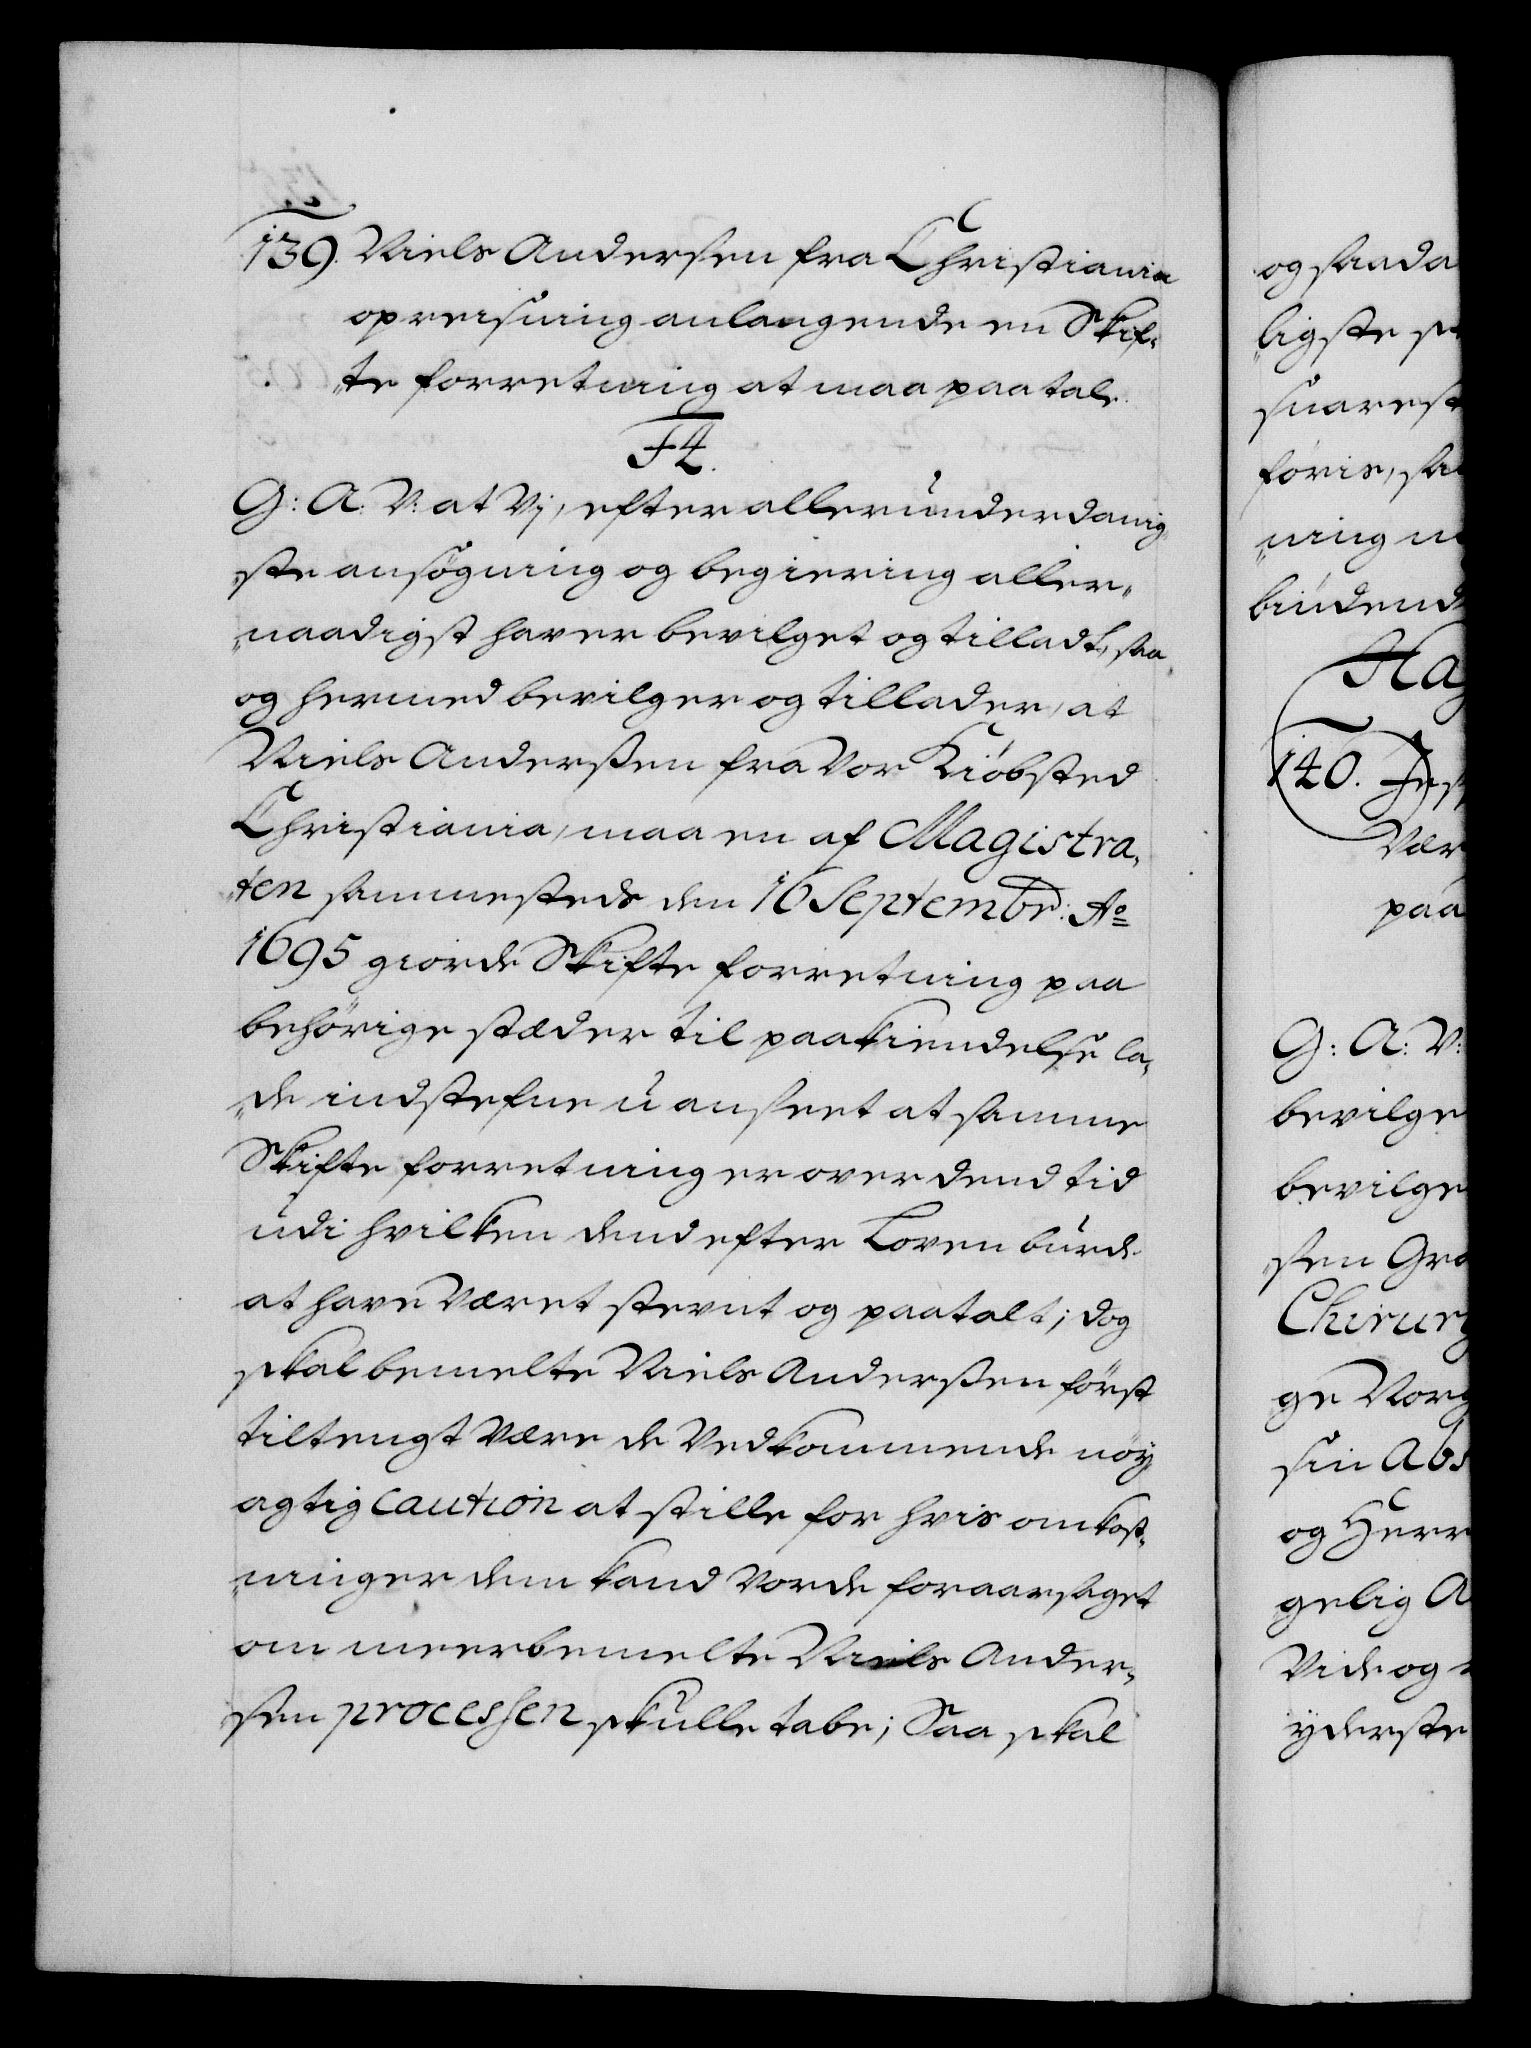 139. Niels Andersen fra Christiania
opreisning anlangende en Skif-
te forretning at maa paatale.
F4.
G: A: V: at Vj, efter allerunderdanig-
ste ansøgning og begiering aller-
naadigst haver bevilget og tilladt, saa
og hermed bevilger og tillader, at
Niels Anderssen fra Vor Kiøbsted
Christiania, maa en af Magistra-
ten sammesteds den 16 Septembr: Ao
1695 giorde Skifte forretning paa
behørige stæder til paakiendelse la-
de indstefne uanseet at samme
Skifte forretning er over dend tid
udi hvilken dend efter Loven burde
at have Været stevnt og paatalt; dog
skal bemelte Niels Anderssen først
tiltengt Være de Vedkommende nøy-
agtig caution at stille for hvis omkost-
ninger dem kand Vorde foraarsaget
om meerbemelte Niels Ander-
sen processen skulle tabe; Saa skal
og saada
ligste
suarest
føris, sa
ning
biudend
Hag
140. Jes
Vær
paa
G: A: V:
bevilge
bevilge
sen Gra
Chirurg
ge Norg
sin Abs
og Herr
gelig A
Vide og
yderste